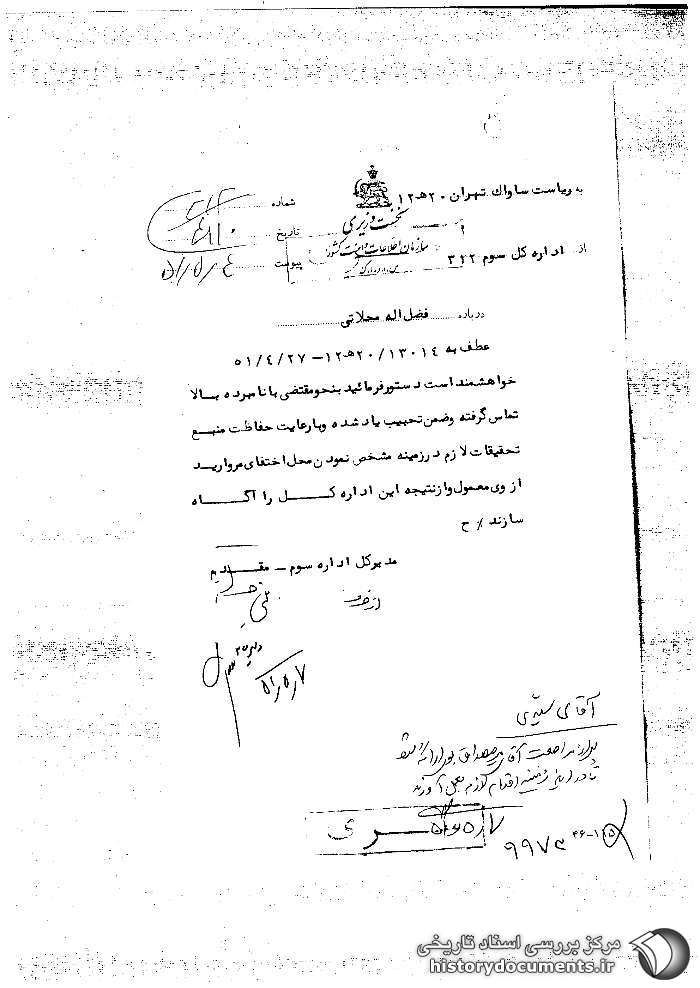 به ریاست ساواک تهران ۲۰ه‍۱۲
نخست وزیری
سازمان اطلاعات و امنیت کشور
از اداره کل سوم ۳۱۲
شماره
تاریخ
پیوست ۵۱/۵/۴
درباره فضل اله محلاتی
عطف به ۱۳۰۱۴/۲۰ه‍۱۲-۵۱/۴/۲۷
خواهشمند است دستور فرمائید بنحو مقتضی با نامبرده بالا
تماس گرفته وضمن تحبیب یاد شده وبا رعایت حفاظت منبع
تحقیقات لازم در زمینه مشخص نمودن محل اختفای مروارید
از وی معمول واز نتیجه این اداره کل را آگاه
سازند / ح
مدیر کل اداره سوم - مقدم
از طرف
۵۱/۵/۷
آقای
پس از مراجعت آقای
تا در این زمینه اقدام لازم بعمل آورند
سری
۹۹۷۳
مرکز بررسی اسناد تاریخی
historydocuments.ir